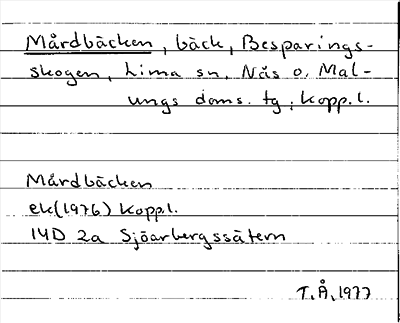 Mårdbäcken, bäck, Besparings-
skogen, Lima sn, Nås o. Mal-
ungs doms. tg, Kopp.l.
Mårdbäcken
ek(1976) Kopp.l.
14D 2a Sjöarbergssätern
T.Å.1977